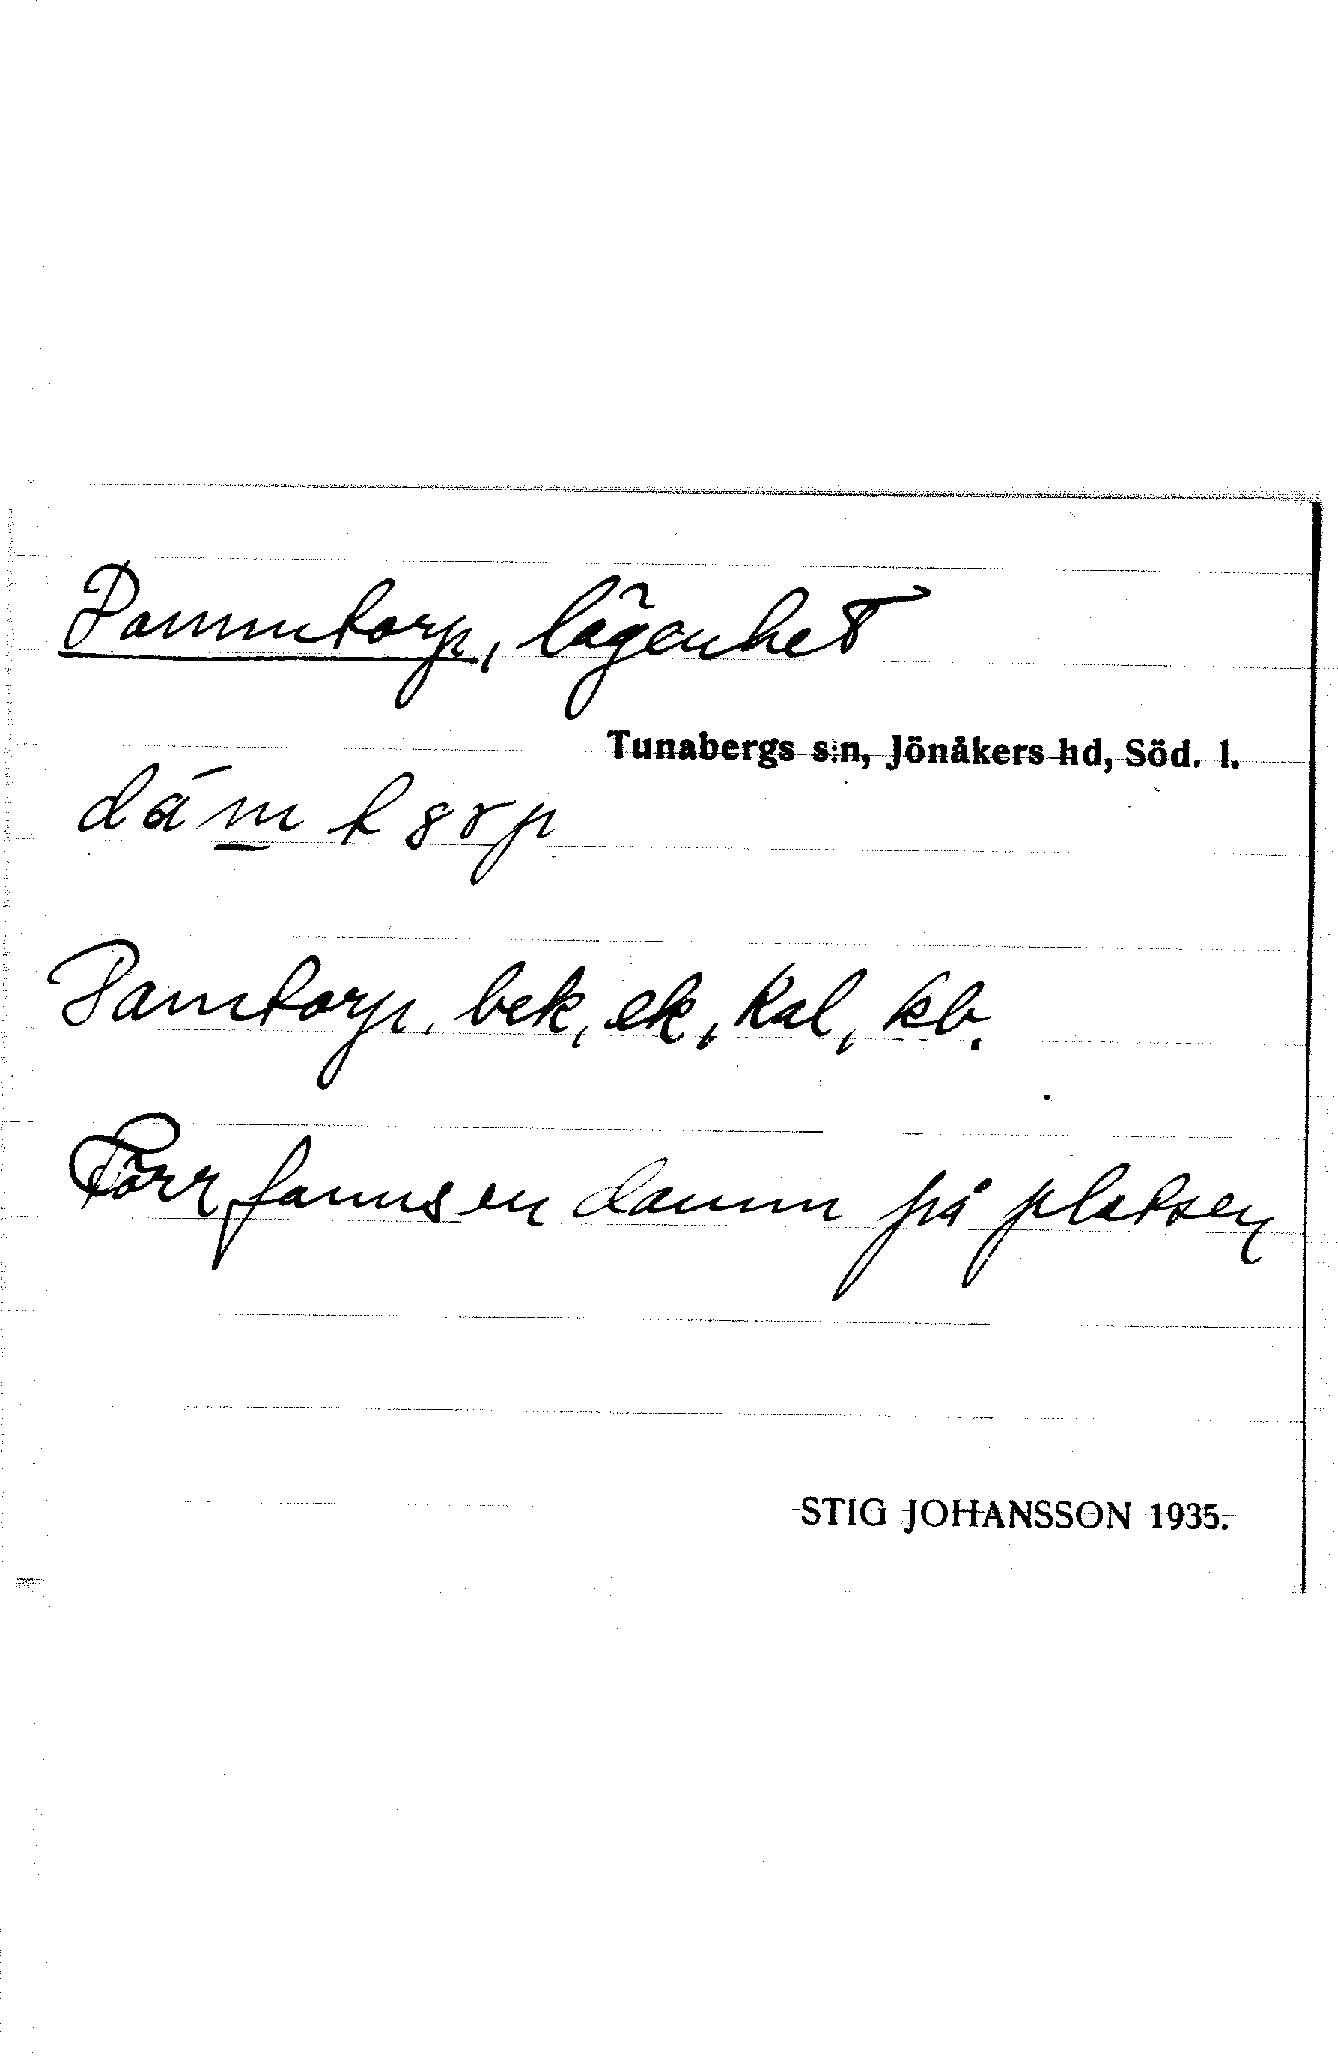 Dammtorp, lägenhet
Tunabergs s:n, Jönåkers hd, Söd. l.
dámtorp
Damtorp. bek, ek, kal, kb.
Förr fanns en damm på platsen
STIG JOHANSSON 1935.